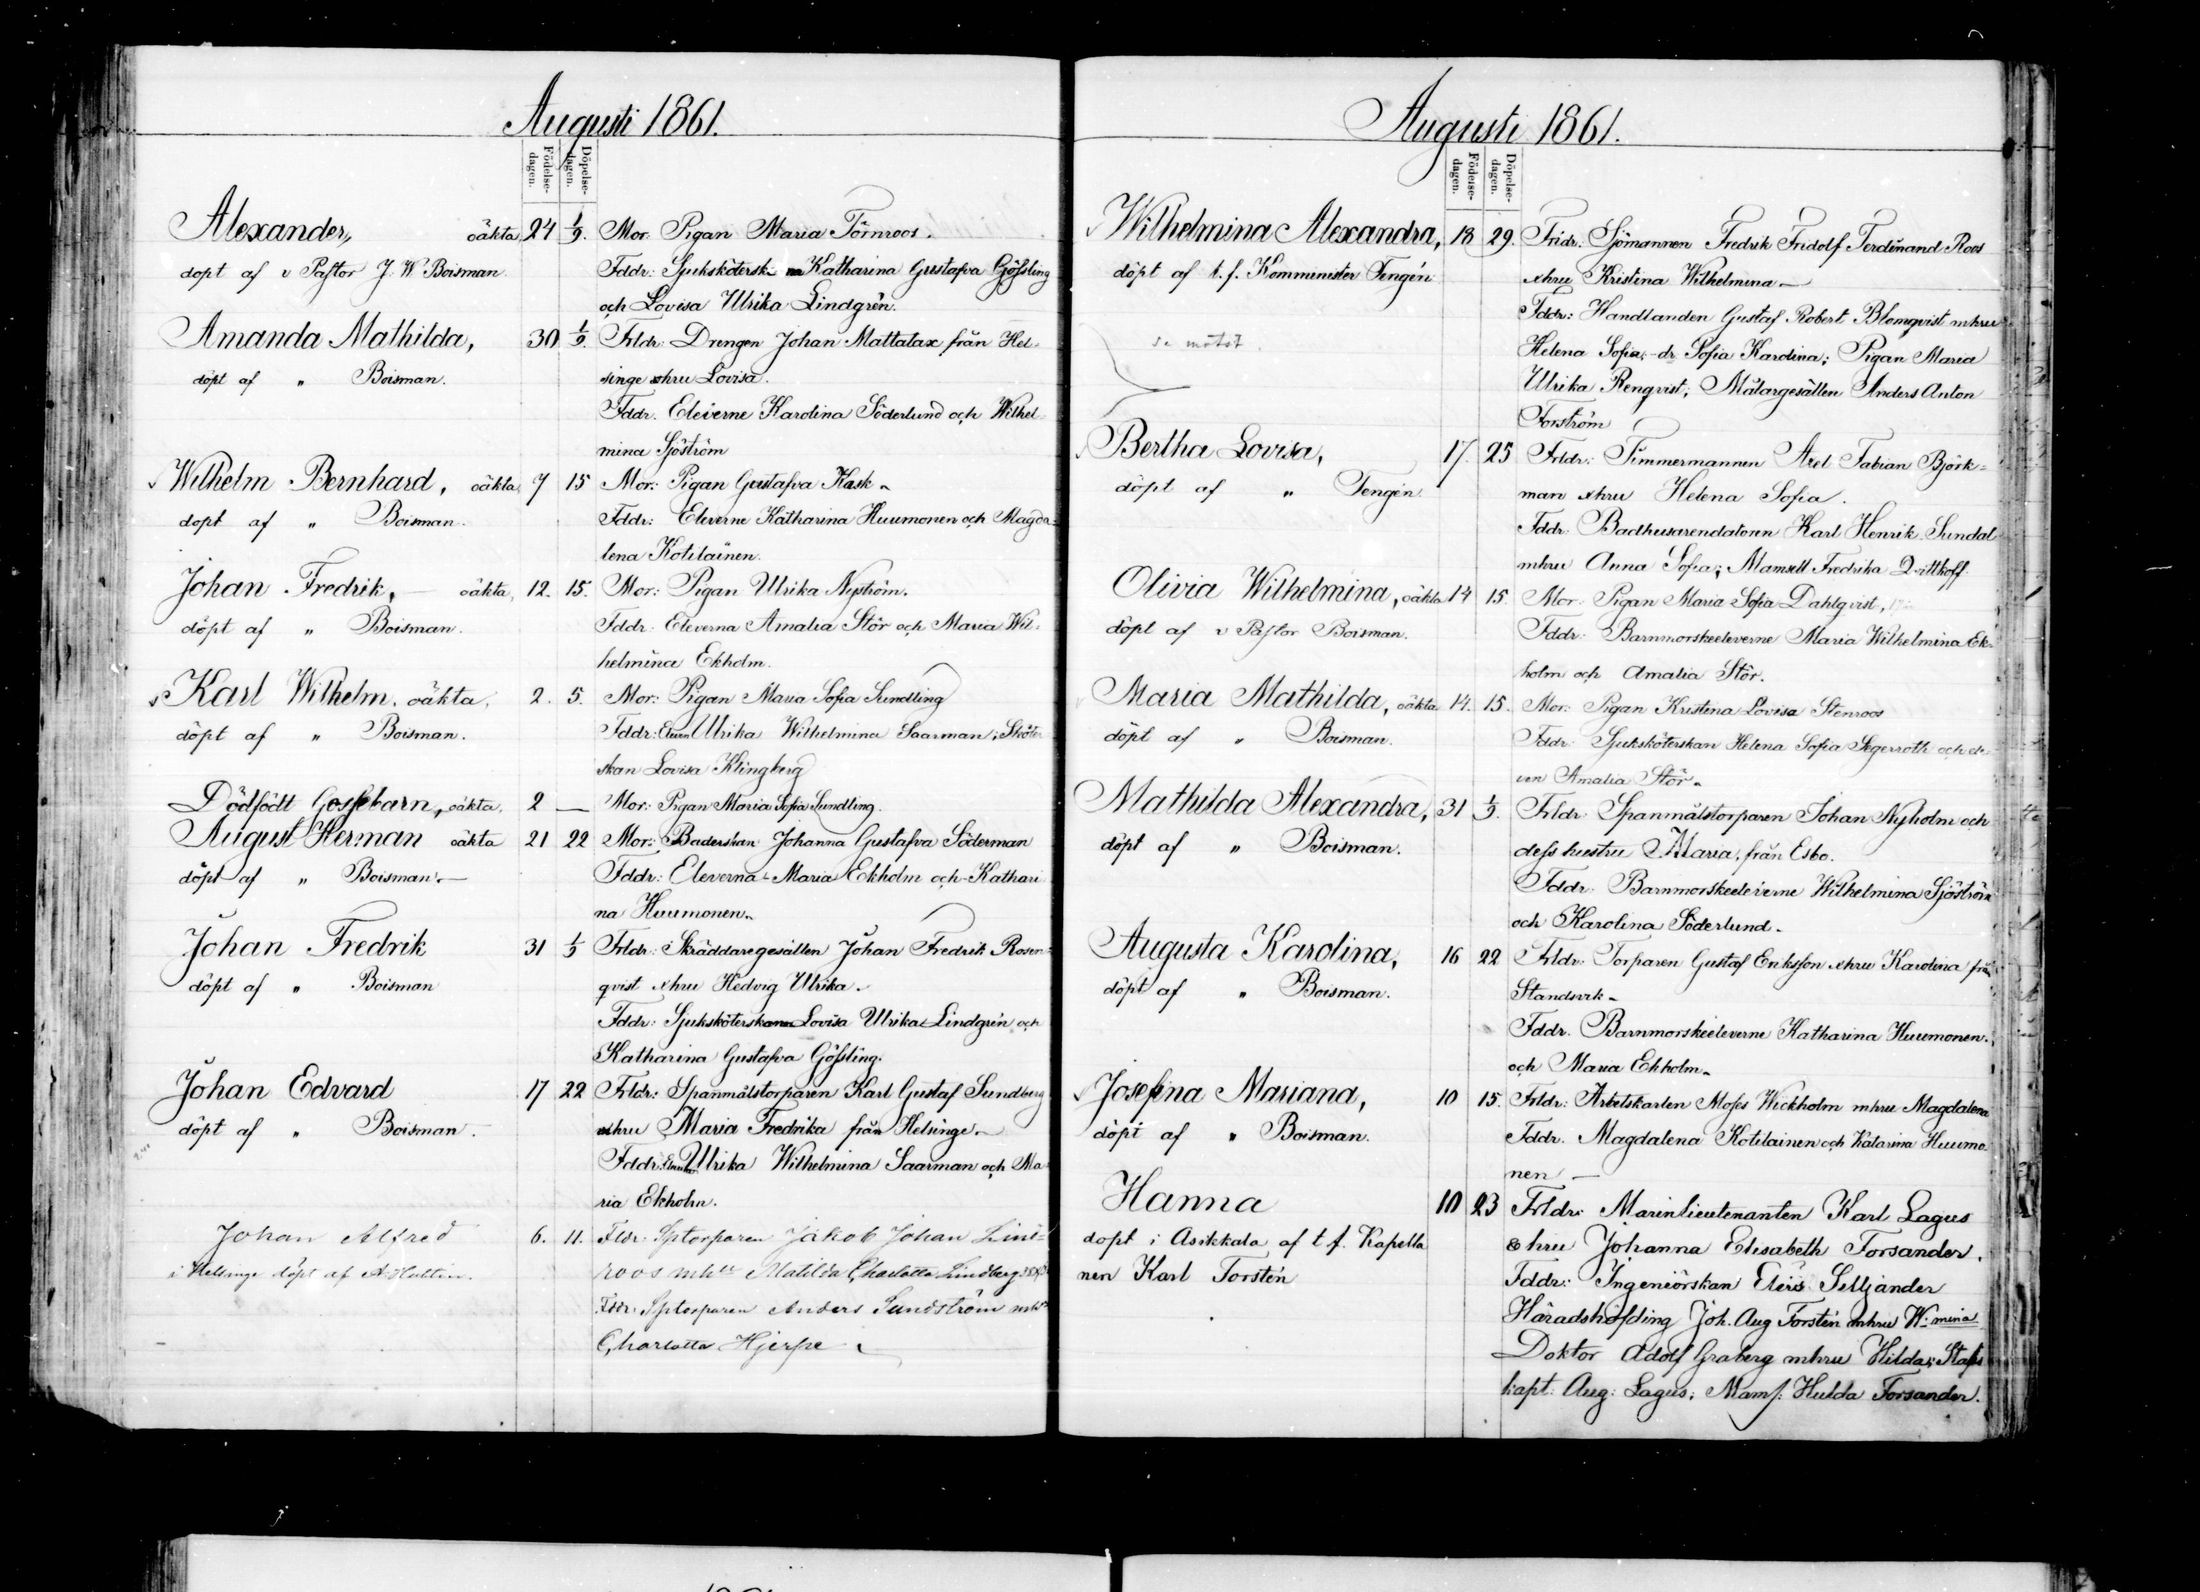 Augusti 1861.
Födelse-dagen.
Döpelse-dagen.
Alexander, oäkta 24 1/9. Mor: Pigan Maria Törnroos.
döpt af v Pastor J. W Boisman. Fddr: Sjuksköterskorna Katharina Gustafva Gössling
och Lovisa Ulrika Lindgrén.
Amanda Mathilda, 30 1/9. Frldr: Drengen Johan Mattalax från Hel-
döpt af " Boisman. singe o hru Lovisa.
Fddr. Eleverne Karolina Söderlund och Wilhel-
mina Sjöström
Wilhelm Bernhard, oäkta 7 15 Mor: Pigan Gustafva Kask
döpt af " Boisman. Fddr: Eleverne Katharina Huumonen och Magda-
lena Kotilainen.
Johan Fredrik, oäkta, 12. 15. Mor: Pigan Ulrika Nyström.
döpt af " Boisman. Fddr: Eleverna Amalia Stör och Maria Wil-
helmina Ekholm.
Karl Wilhelm, oäkta, 2. 5. Mor: Pigan Maria Sofia Sundling
döpt af " Boisman. Fddr: Eleven Ulrika Wilhelmina Saarman; Sköter-
skan Lovisa Klingberg
Dödfödt Gossebarn, oäkta, 2 — Mor: Pigan Maria Sofia Sundling.
August Herman oäkta 21 22 Mor: Baderskan Johanna Gustafva Söderman
döpt af " Boisman. Fddr: Eleverna Maria Ekholm och Kathari-
na Huumonen.
Johan Fredrik 31 1/9 Frldr: Skräddaregesällen Johan Fredrik Rosen-
döpt af " Boisman qvist o hru Hedvig Ulrika.
Fddr: Sjuksköterskorna Lovisa Ulrika Lindgrén och
Katharina Gustafva Gössling.
Johan Edvard 17 22 Frldr: Spanmålstorparen Karl Gustaf Sundberg
döpt af " Boisman. o hru Maria Fredrika från Helsinge.
Fddr: Ulrika Wilhelmina Saarman och Ma-
ria Ekholm.
Johan Alfred 6. 11. Fldr: Sptorparen Jakob Johan Lind-
i Helsinge döpt af A. Huttin. roos mhu Matilda Charlotta Lindberg
Fddr: Sptorparen Anders Sundström mhu
Charlotta Hjerpe
Augusti 1861.
Födelse-dagen.
Döpelse-dagen.
Wilhelmina Alexandra, 18 29. Frldr. Sjömannen Fredrik Fridolf Ferdinand Roos
döpt af t. f. Komminister Tengén o hru Kristina Wilhelmina
Fddr: Handlanden Gustaf Robert Blomqvist mhru
Helena Sofia, dr Sofia Karolina; Pigan Maria
Ulrika Renqvist; Målargesällen Anders Anton
Forström
Bertha Lovisa, 17. 25 Frldr: Timmermannen Axel Fabian Björk-
döpt af " Tengén. man o hru Helena Sofia.
Fddr. Badhusarendatorn Karl Henrik Sundal
mhru Anna Sofia; Mamsell Fredrika Qvitthoff.
Olivia Wilhelmina, oäkta 14 15. Mor: Pigan Maria Sofia Dahlqvist,
döpt af v Pastor Boisman. Fddr: Barnmorskeeleverne Maria Wilhelmina Ek-
holm och Amalia Stör.
Maria Mathilda, oäkta 14. 15. Mor: Pigan Kristina Lovisa Stenroos
döpt af " Boisman. Fddr: Sjuksköterskan Helena Sofia Segerroth och ele-
ven Amalia Stör.
Mathilda Alexandra, 31 1/9. Frldr: Spanmålstorparen Johan Nyholm och
döpt af " Boisman. dess hustru Maria, från Esbo.
Fddr: Barnmorskeeleverne Wilhelmina Sjöström
och Karolina Söderlund.
Augusta Karolina, 16 22 Frldr: Torparen Gustaf Eriksson o hru Karolina från
döpt af " Boisman. Standsvik.
Fddr. Barnmorskeeleverne Katharina Huumonen.
och Maria Ekholm.
Josefina Mariana, 10 15. Frldr: Arbetskarlen Moses Wickholm mhru Magdalena
döpt af " Boisman. Fddr. Magdalena Kotilainen och Katarina Huumo-
nen
Hanna 10 23 Frldr: Marinlieutenanten Karl Lagus
döpt i Asikkala af t. f. Kapella o hru Johanna Elisabeth Forsander.
nen Karl Torstén Fddr: Ingeniörskan Selljander
Häradshöfding Joh. Aug Forstén mhru W:mina
Doktor Adolf Graberg mhru Hilda; Stabs
kapt. Aug: Lagus; Mams. Hulda Forsander.